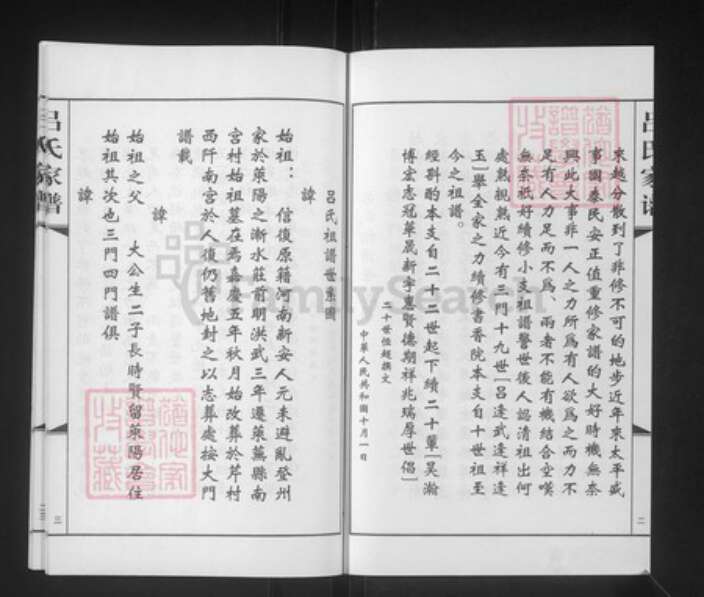 呂氏家譜
來越分散到了非修不可的地步近年來太平盛
事國泰民安正值重修家譜的大好時機無奈
興此大事非一人之力所爲有人欲爲之而力不
足有人力足而不爲、兩者不能有機結合空嘆
無奈祇好續修小支祖譜警世後人認清祖出何
處孰親孰近今有三門十九世[呂逢武逢祥逢
玉]舉全家之力續修書香院本支自十世祖至
今之祖譜。
經斟酌本支自二十二世起下續二十輩[昊瀚
博宏志冠華晟新宇惠賢德期祥兆瑞厚世倡]
二十世恒超撰文
中華人民共和國十月一日
二
呂氏祖譜世系圖
諱
始祖: 信復原籍河南新安人元末避亂登州
家於萊陽之漸水莊前明洪武三年遷萊蕪縣南
宮村始祖墓在焉嘉慶五年秋月始改葬於芹村
西阡南宮於人復仍舊地封之以志葬處按大門
譜載
諱
始祖之父 大公生二子長時賢留萊陽居住
諱
始祖其次也三門四門譜俱
呂氏家譜
三
FamilySearch